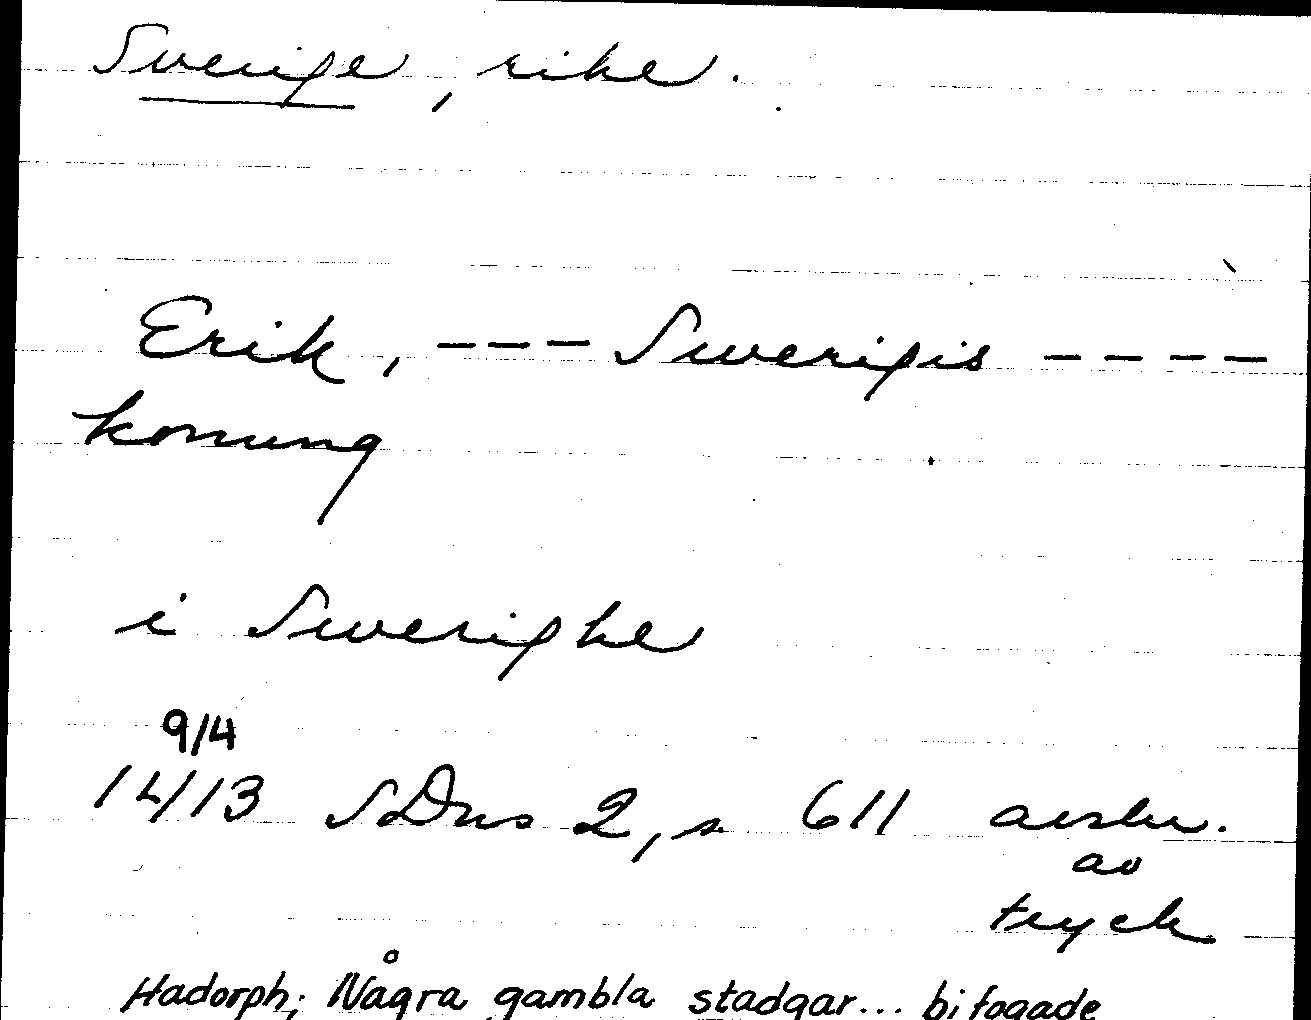 Sverige, rike.
Erik, --- Swerigis ----
konung
i Swerighe
9/4
1413 SDns 2, s 611 avskr.
av
tryck
Hadorph; Några gambla stadgar... bifogade